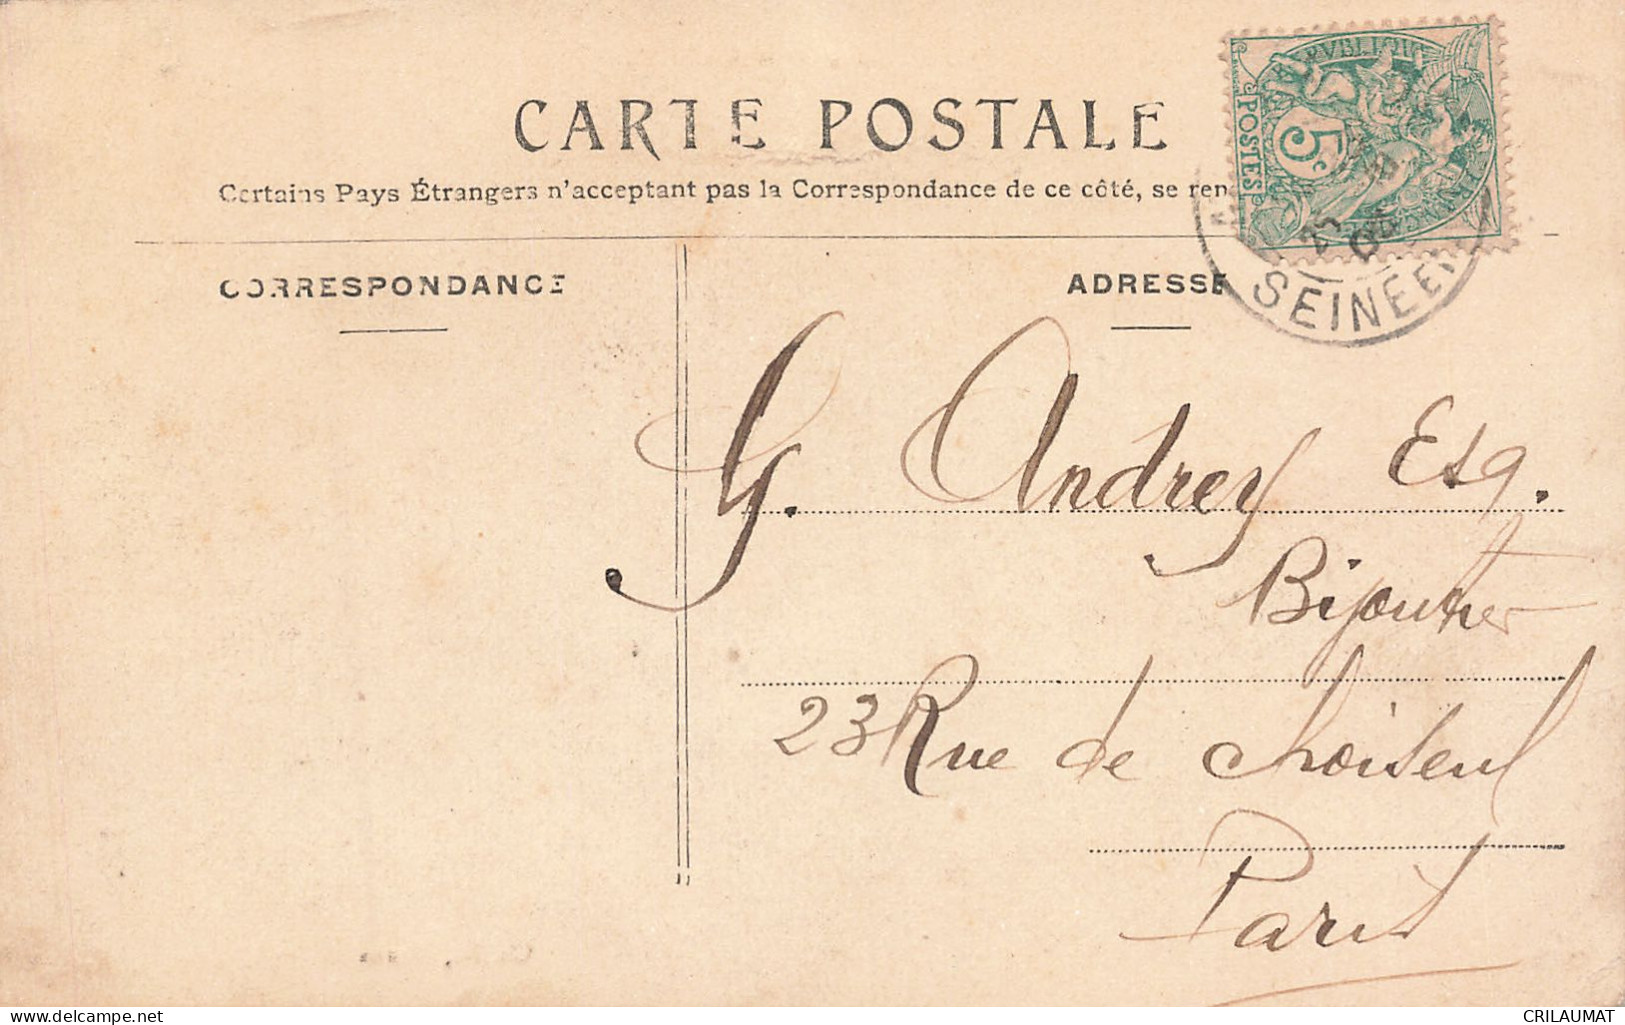 CARTE POSTALE
Certains Pays Étrangers n'acceptant pas la Correspondance de ce côté, se ren
CORRESPONDANCE
ADRESSE
POSTES
5c
04
SEINE
G. Andrey Esq.
Bijoutier
23 Rue de Choiseul
Paris
www.delcampe.net
CRILAUMAT